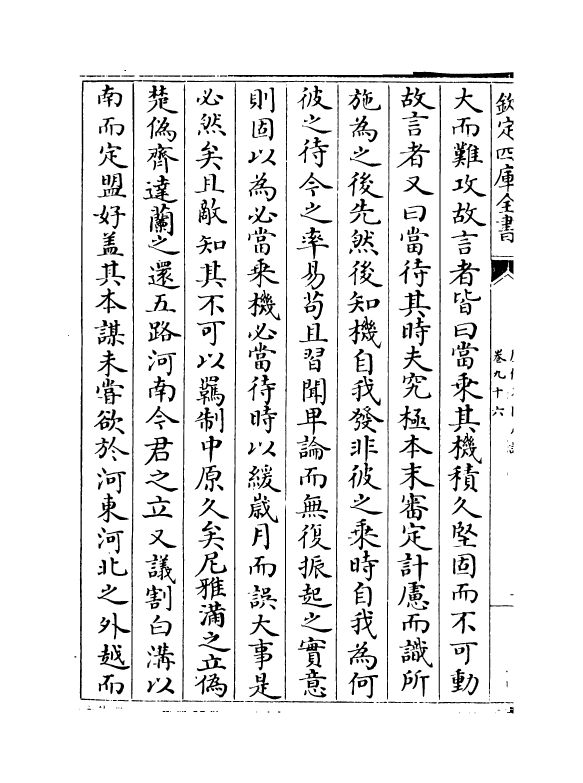 欽定四庫全書
卷九十六
大而難攻故言者皆曰當乘其機積久堅固而不可動
故言者又曰當待其時夫究極本末審定計慮而識所
施為之後先然後知機自我發非彼之乘時自我為何
彼之待今之率易苟且習聞卑論而無復振起之實意
則固以為必當乘機必當待時以緩歲月而誤大事是
必然矣且敵知其不可以羈制中原久矣尼雅滿之立偽
楚偽齊達蘭之還五路河南今君之立又議割白溝以
南而定盟好蓋其本謀未嘗欲於河東河北之外越而